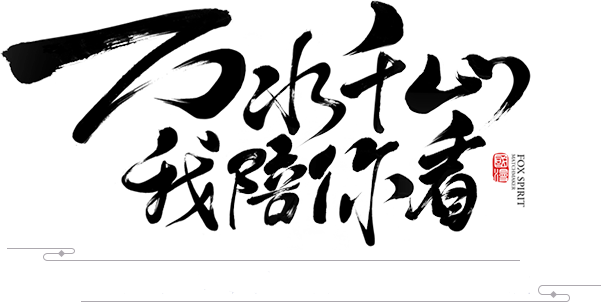 万水千山
我陪你看
FOX SPIRIT
MATCHMAKER